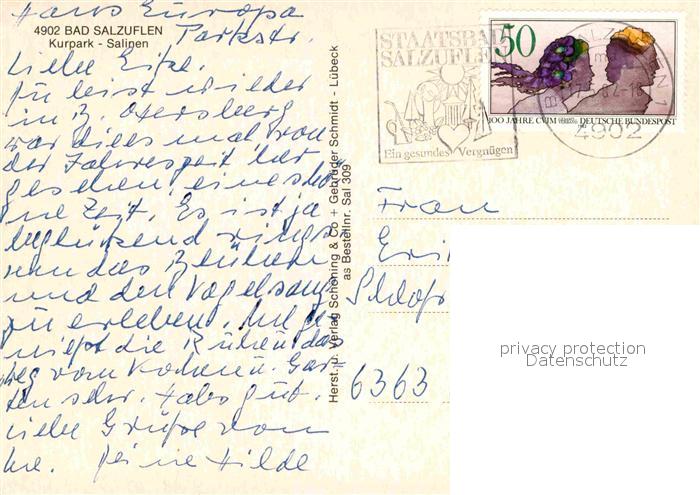 Haus Europa
4902 BAD SALZUFLEN
Kurpark - Salinen
Parkstr.
Liebe Erika.
Du bist wieder
in B.
war diesmal von
der Jahreszeit her
gesehen, eine schö
ne Zeit. Es ist ja
beglückend rings
um das Blühen
und den Vogelsang
zu erleben.
nießt die Ruhe u. das
weg vom Kochen u. Gar
ten sehr. Habs gut.
Liebe Grüße von
Deine Hilde
Herst. u. Verlag Schöning & Co + Gebrüder Schmidt - Lübeck
as Bestellnr. Sal 309
STAATSBA
SALZUFLE
Ein gesundes Vergnügen
50
100 JAHRE CVJM DEUTSCHE BUNDESPOST
4902
Frau
Eri
Schloß
6363
privacy protection
Datenschutz